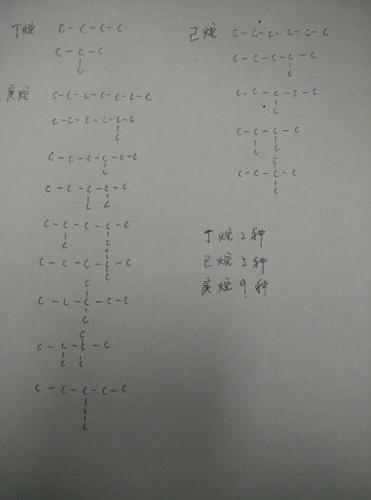 丁烷 C-C-C-C
C-C-C
C
庚烷 C-C-C-C-C-C-C
C-C-C-C-C-C
C
C-C-C-C-C-C
C
C-C-C-C-C
C C
C-C-C-C-C
C C
C-C-C-C-C
C
C
C-C-C-C-C
C
C
C-C-C-C
C C
C-C-C-C-C
C
己烷 C-C-C-C-C-C
C-C-C-C-C
C
C-C-C-C-C
C
C-C-C-C
C C
C
C-C-C-C
C
丁烷2种
己烷5种
庚烷9种